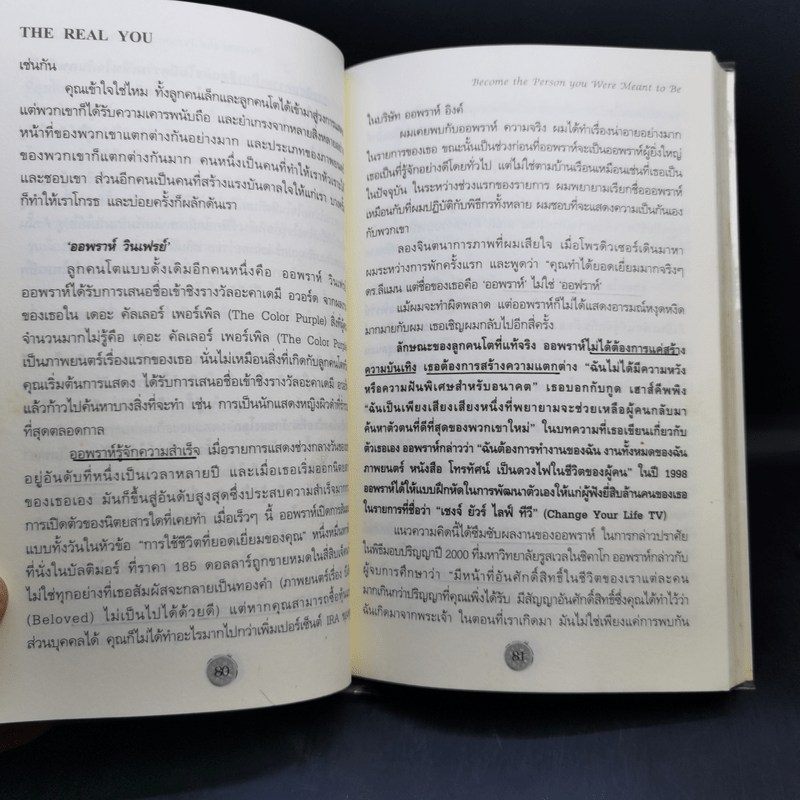 THE REAL YOU
เช่นกัน
คุณเข้าใจใช่ไหม ทั้งลูกคนเล็กและลูกคนโตได้เข้ามาสู่วงการ
แต่พวกเขาก็ได้รับความเคารพนับถือ และยำเกรงจากหลายสิ่งหลายอย่าง
หน้าที่ของพวกเขาแตกต่างกันอย่างมาก และประเภทของภาพยนตร์
ของพวกเขาก็แตกต่างกันมาก คนหนึ่งเป็นคนที่ทำให้เราหัวเราะ
และชอบเขา ส่วนอีกคนเป็นคนที่สร้างแรงบันดาลใจให้แก่เรา
ก็ทำให้เราโกรธ และบ่อยครั้งก็ผลักดันเรา
‘ออพราห์ วินเฟรย์’
ลูกคนโตแบบดั้งเดิมอีกคนหนึ่งคือ ออพราห์ วินเฟรย์
ออพราห์ได้รับการเสนอชื่อเข้าชิงรางวัลอะคาเดมี อวอร์ด จาก
ของเธอใน เดอะ คัลเลอร์ เพอร์เพิล (The Color Purple) สิ่งที่ผู้
จำนวนมากไม่รู้คือ เดอะ คัลเลอร์ เพอร์เพิล (The Color Purple)
เป็นภาพยนตร์เรื่องแรกของเธอ นั่นไม่เหมือนสิ่งที่เกิดกับลูกคนโต
คุณเริ่มต้นการแสดง ได้รับการเสนอชื่อเข้าชิงรางวัลอะคาเดมี
แล้วก้าวไปค้นหาบางสิ่งที่จะทำ เช่น การเป็นนักแสดงหญิงผิวดำที่
ที่สุดตลอดกาล
ออพราห์รู้จักความสำเร็จ เมื่อรายการแสดงช่วงกลางวันของ
อยู่อันดับที่หนึ่งเป็นเวลาหลายปี และเมื่อเธอเริ่มออกนิตย
ของเธอเอง มันก็ขึ้นสู่อันดับสูงสุดซึ่งประสบความสำเร็จมาก
การเปิดตัวของนิตยสารใดที่เคยทำ เมื่อเร็วๆ นี้ ออพราห์เปิดการ
แบบทั้งวันในหัวข้อ “การใช้ชีวิตที่ยอดเยี่ยมของคุณ” หนึ่งหมื่น
ที่นั่งในบัลติมอร์ ที่ราคา 185 ดอลลาร์ถูกขายหมดในสี่สิบเจ็ด
ไม่ใช่ทุกอย่างที่เธอสัมผัสจะกลายเป็นทองคำ (ภาพยนตร์เรื่อง
(Beloved) ไม่เป็นไปได้ด้วยดี) แต่หากคุณสามารถซื้อหุ้น
ส่วนบุคคลได้ คุณก็ไม่ได้ทำอะไรมากไปกว่าเพิ่มเปอร์เซ็นต์ IRA ของ
80
Become the Person you Were Meant to Be
ในบริษัท ออพราห์ อิงค์
ผมเคยพบกับออพราห์ ความจริง ผมได้ทำเรื่องน่าอายอย่างมาก
ในรายการของเธอ ขณะนั้นเป็นช่วงก่อนที่ออพราห์จะเป็นออพราห์ผู้ยิ่งใหญ่
เป็นที่รู้จักอย่างดีโดยทั่วไป แต่ไม่ใช่ตามบ้านเรือนเหมือนเช่นที่เธอเป็น
ในปัจจุบัน ในระหว่างช่วงแรกของรายการ ผมพยายามเรียกชื่อออพราห์
เหมือนกับที่ผมปฏิบัติกับพิธีกรทั้งหลาย ผมชอบที่จะแสดงความเป็นกันเอง
กับพวกเขา
ลองจินตนาการภาพที่ผมเสียใจ เมื่อโพรดิวเซอร์เดินมาหา
ผมระหว่างการพักครั้งแรก และพูดว่า “คุณทำได้ยอดเยี่ยมมากจริงๆ
ดร.ลีแมน แต่ชื่อของเธอคือ ‘ออพราห์’ ไม่ใช่ ‘อฟราห์’
แม้ผมจะทำผิดพลาด แต่ออพราห์ก็ไม่ได้แสดงอารมณ์หงุดหงิด
มากมายกับผม เธอเชิญผมกลับไปอีกสี่ครั้ง
ลักษณะของลูกคนโตที่แท้จริง ออพราห์ไม่ได้ต้องการแค่สร้าง
ความบันเทิง เธอต้องการสร้างความแตกต่าง “ฉันไม่ได้มีความหวัง
หรือความฝันพิเศษสำหรับอนาคต” เธอบอกกับกูด เฮาส์คีพพิง
“ฉันเป็นเพียงเสียงเสียงหนึ่งที่พยายามจะช่วยเหลือผู้คนกลับมา
ค้นหาตัวตนที่ดีที่สุดของพวกเขาใหม่” ในบทความที่เธอเขียนเกี่ยวกับ
ตัวเธอเอง ออพราห์กล่าวว่า “ฉันต้องการทำงานของฉัน งานทั้งหมดของฉัน
ภาพยนตร์ หนังสือ โทรทัศน์ เป็นดวงไฟในชีวิตของผู้คน” ในปี 1998
ออพราห์ได้ให้แบบฝึกหัดในการพัฒนาตัวเองให้แก่ผู้ฟังยี่สิบล้านคนของเธอ
ในรายการที่ชื่อว่า “เชงจ์ ยัวร์ ไลฟ์ ทีวี” (Change Your Life TV)
แนวความคิดนี้ได้ซึมซับผลงานของออพราห์ ในการกล่าวปราศัย
ในพิธีมอบปริญญาปี 2000 ที่มหาวิทาลัยรูสเวลในชิคาโก ออพราห์กล่าวกับ
ผู้จบการศึกษาว่า “มีหน้าที่อันศักดิ์สิทธิ์ในชีวิตของเราแต่ละคน
มากเกินกว่าปริญญาที่คุณเพิ่งได้รับ มีสัญญาอันศักดิ์สิทธิ์ซึ่งคุณได้ทำไว้ว่า
ฉันเกิดมาจากพระเจ้า ในตอนที่เราเกิดมา มันไม่ใช่เพียงแค่การพบกัน
81